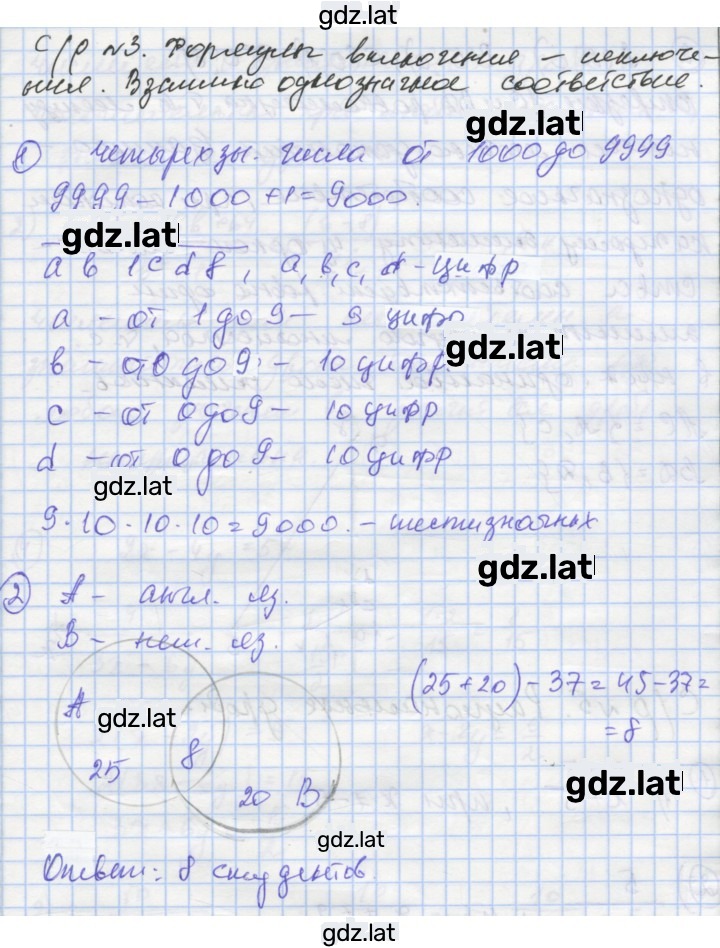 gdz.lat
С/р №3. Формулы включения – исключе-
ния. Взаимно однозначное соответствие.
gdz.lat
① четырехзн. числа от 1000 до 9999
9999 – 1000 + 1 = 9000.
gdz.lat
a b 1 c d 8, a, b, c, d - цифр
a – от 1 до 9 – 9 цифр
gdz.lat
b – от 0 до 9 – 10 цифр.
c – от 0 до 9 – 10 цифр
d – от 0 до 9 – 10 цифр
gdz.lat
9 · 10 · 10 · 10 = 9000. – шестизначных
gdz.lat
② A – англ. яз.
B – нем. яз.
(25 + 20) – 37 = 45 – 37 =
= 8
A
gdz.lat
25 8
20 B
gdz.lat
gdz.lat
Ответ: 8 студентов
gdz.lat